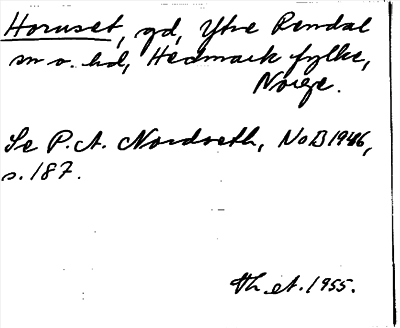 Hornset, gd, Ytre Rendal
sn o. hd, Hedmark fylke,
Norge.
Se P.A. Nordseth, NoB 1946,
s. 187.
Th. A. 1955.